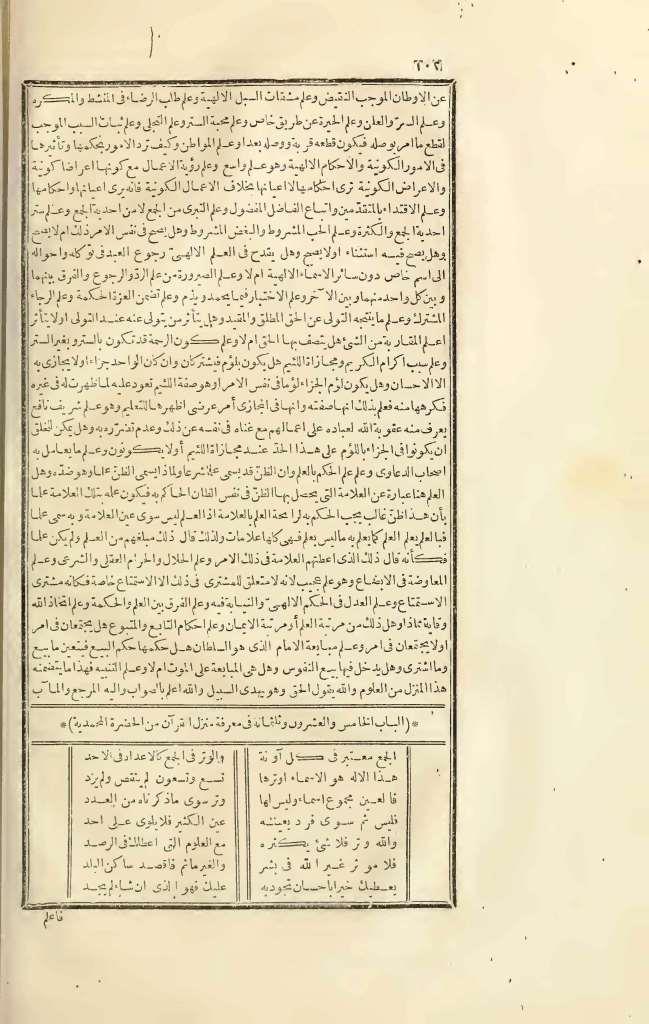 ٢٠٢
عن الاوطان الموجب التقبض وعلم مشقات السبل الالهية وعلم طلب الرضاء فى المنشط والمكره
وعلم السر والعلن وعلم الحيرة عن طريق خاص وعلم محبة الستر وعلم التجلى وعلم ثبات السبب الموجب
لقطع ما امر بوصله فيكون قطعه قربة ووصله بعدا وعلم المواطن وكيف ترد الامور بحكمها وتأثيرها
فى الامور الكونية والاحكام الالهية وهو علم واسع وعلم رؤية الاعمال مع كونها اعراضا كونية
والاعراض الكونية ترى احكامها لا اعيانها بخلاف الاعمال الكونية فانه يرى اعيانها واحكامها
وعلم الاقتداء بالمتقدمين واتباع الفاضل المفضول وعلم التبرى من الجمع لا من احدية الجمع وعلم ستر
احدية الجمع والكثرة وعلم الحب المشروط والبغض المشروط وهل يصح فى نفس الامر ذلك ام لا يصح
وهل يصح فيه استثناء اولا يصح وهل يقدح فى العلم الالهى رجوع العبد فى توكله واحواله
الى اسم خاص دون سائر الاسماء الالهية ام لا وعلم الصيرورة من علم الرد والرجوع والفرق بينهما
وبين كل واحد منهما وبين الآخر وعلم الاختبار فيما يحمد ويذم وعلم تضمن العزة الحكمة وعلم الرجاء
المشترك وعلم ما ينتجه التولى عن الحق المطلق والمقيد وهل يتأثر من يتولى عنه عند التولى اولا يتأثر
اعلم المقاربة من الشئ هل يتصف بها الحق ام لا وعلم كون الرحمة قد تكون بالستر وبغير الستر
وعلم سبب اكرام الكريم ومجازاة اللئيم هل يكون بلؤم فيشتركان وان كان الواحد جزاء اولا يجازى به
الا الاحسان وهل يكون لؤم الجزاء لؤما فى نفس الامر او هو صفة اللئيم تعود عليه لما ظهرت له فى غيره
فكرهها منه فعلم بذلك انها صفته وانها فى المجازى أمر عرضى اظهرها للتعليم وهو علم شريف نافع
يعرف منه عقوبة الله لعباده على اعمالهم مع غناه فى نفسه عن ذلك وعدم تضرره به وهل يمكن للخلق
ان يكونوا فى الجزاء باللؤم على هذا الحد عند مجازاة اللئيم أولا يكونون وعلم ما يعامل به
اصحاب الدعاوى وعلم علم الحكم بالعلم وان الظن قد يسمى علما شرعا ولماذا يسمى الظن علما وهو ضده وهل
العلم هنا عبارة عن العلامة التى يحصل بها الظن فى نفس الظان الحاكم به فيكون علمه بتلك العلامة علما
بأن هذا ظن غالب يجب الحكم به لرائحة العلم بالعلامة اذ العلم ليس سوى عين العلامة وبه سمى علما
فبالعلم يعلم العلم كما يعلم به ما ليس بعلم فهى كلها علامات ولذلك قال ذلك مبلغهم من العلم ولم يكن علما
فكأنه قال ذلك الذى اعطتهم العلامة فى ذلك الامر وعلم الحلال والحرام العقلى والشرعى وعلم
المعاوضة فى الابضاع وهو علم عجيب لانه لا متعلق للمشترى فى ذلك الا الاستمتاع خاصة فكانه مشترى
الاستمتاع وعلم العدل فى الحكم الالهى والنيابة فيه وعلم الفرق بين العلم والحكمة وعلم اتخاذ الله
وقاية مماذا وهل ذلك من مرتبة العلم أو مرتبة الايمان وعلم احكام التابع والمتبوع هل يجتمعان فى امر
اولا يجتمعان فى امر وعلم مبايعة الامام الذى هو السلطان هل حكمها حكم البيع فيتعين ما بيع
وما اشترى وهل يدخل فيها بيع النفوس وهل هى المبايعة على الموت ام لا وعلم التنبيه فهذا ما يتضمنه
هذا المنزل من العلوم والله يقول الحق وهو يهدى السبيل والله اعلم بالصواب واليه المرجع والمآب
*(الباب الخامس والعشرون وثلثمائة فى معرفة منزل القرآن من الحضرة المحمدية)*
الجمع معتبر فى كل آونة والوتر فى الجمع كالاعداد فى الاحد
هذا الاله هو الاسماء اوترها تسع وتسعون لم ينقص ولم يزد
فالعين مجموع اسماء وليس لها وتر سوى ما ذكرناه من العدد
فليس ثم سوى فرد يعينه عين الكثير فلا يلوى على احد
والله وتر فلا شئ يكثره مع العلوم التى اعطاك فى الرصد
فلا موتر غير الله فى بشر والغير ما ثم فاقصد ساكن البلد
يعطيك خيرا باحسان يجود به عليك فهو الذى ان شاء لم يجد
فاعلم